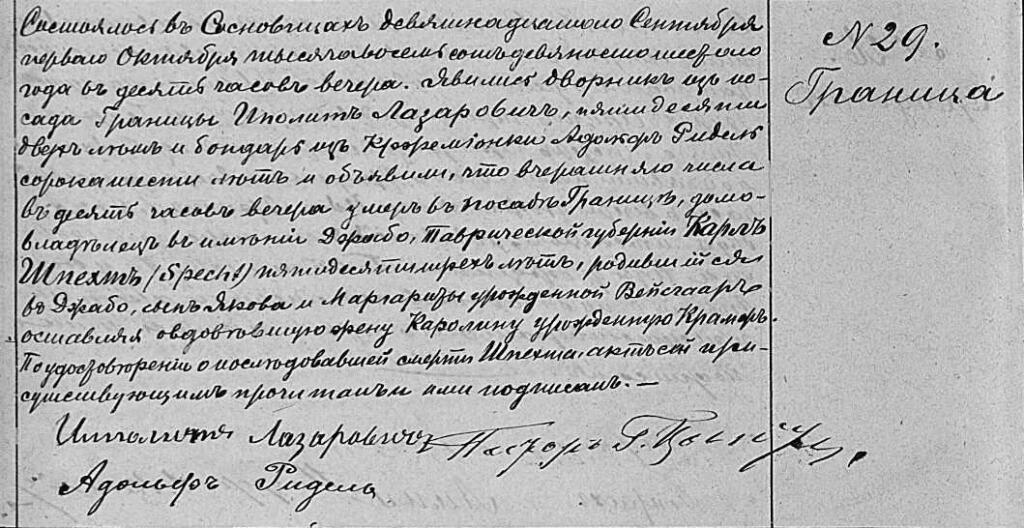 Состоялось въ Сосновицахъ девятнадцатого Сентября
первого Октября тысяча восемь сотъ девяносто шестого
года въ десять часовъ вечера. Явились дворникъ изъ по-
сада Границы Иполитъ Лазаровичъ, пятидесяти
двухъ лѣтъ и бондарь изъ Адольфъ Ридель
сорокашести лѣтъ и объявили, что вчерашняго числа
въ десять часовъ вечера умеръ въ посадѣ Границѣ, домо-
владѣлецъ въ имѣніи Джабо, Таврической губерніи Карлъ
Шпехтъ (Specht) пятидесяти трехъ лѣтъ, родившійся
въ Джабо, сынъ Якова и Маргариты урожденной Вейсгааръ
оставляя овдовѣвшую жену Каролину урожденную Крамеръ.
По удостовѣреніи о послѣдовавшей смерти Шпехта, актъ сей при-
сутствующимъ прочитанъ и ими подписанъ. —
Иполитъ Лазаровичъ Пасторъ Г.
Адольфъ Ридель
N 29.
Граница